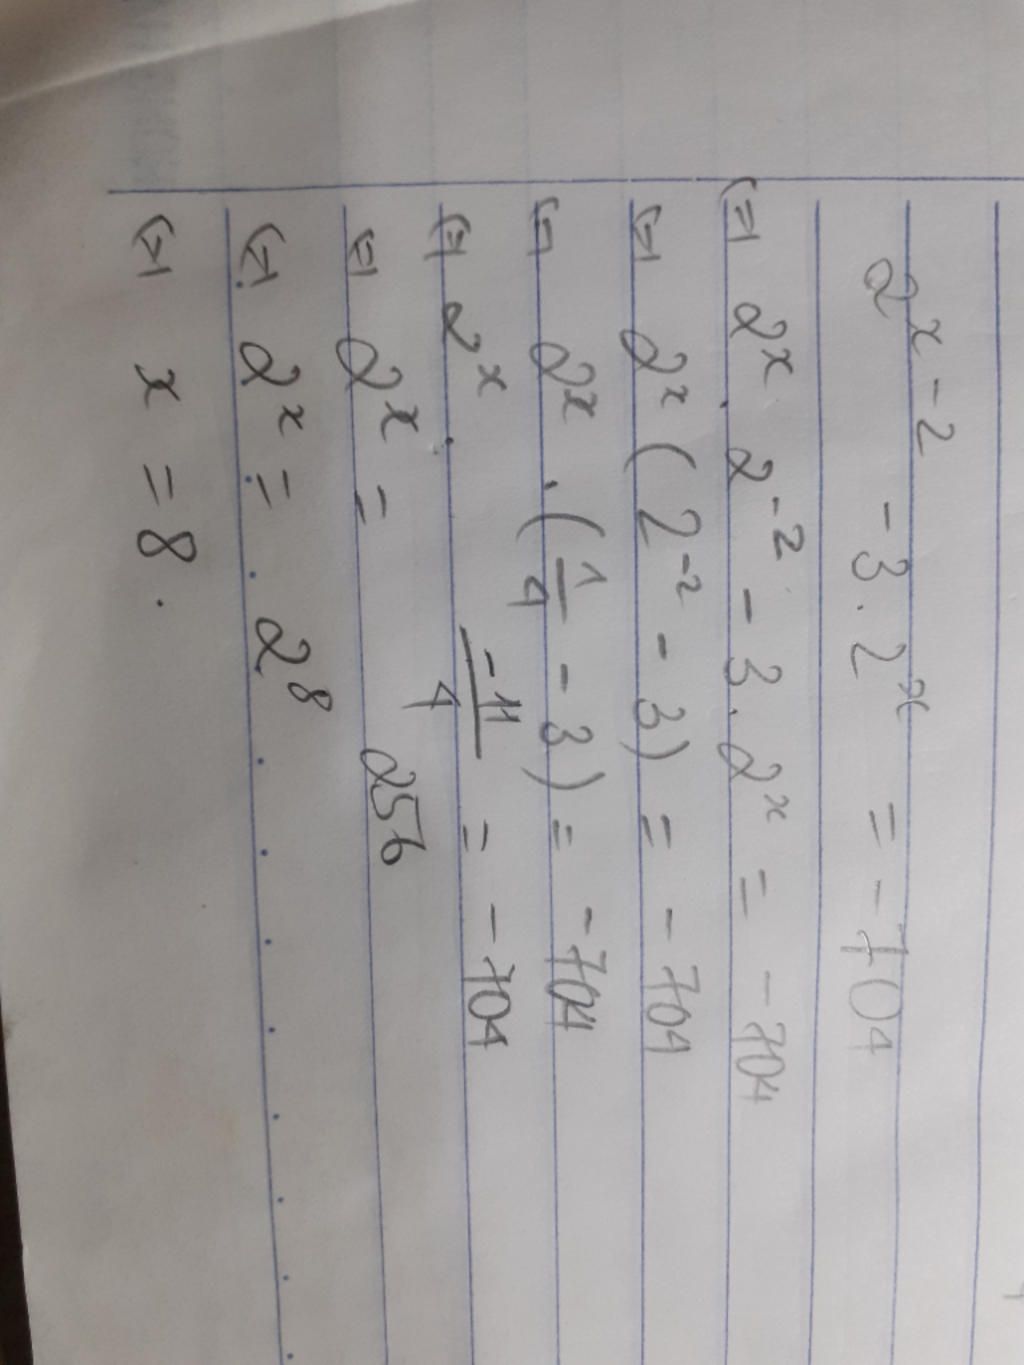 2^{x-2} - 3 . 2^x = -704
(=) 2^x . 2^{-2} - 3 . 2^x = -704
(=) 2^x (2^{-2} - 3) = -704
(=) 2^x . (1/4 - 3) = -704
(=) 2^x . -11/4 = -704
(=) 2^x = 256
(=) 2^x = 2^8
(=) x = 8 .